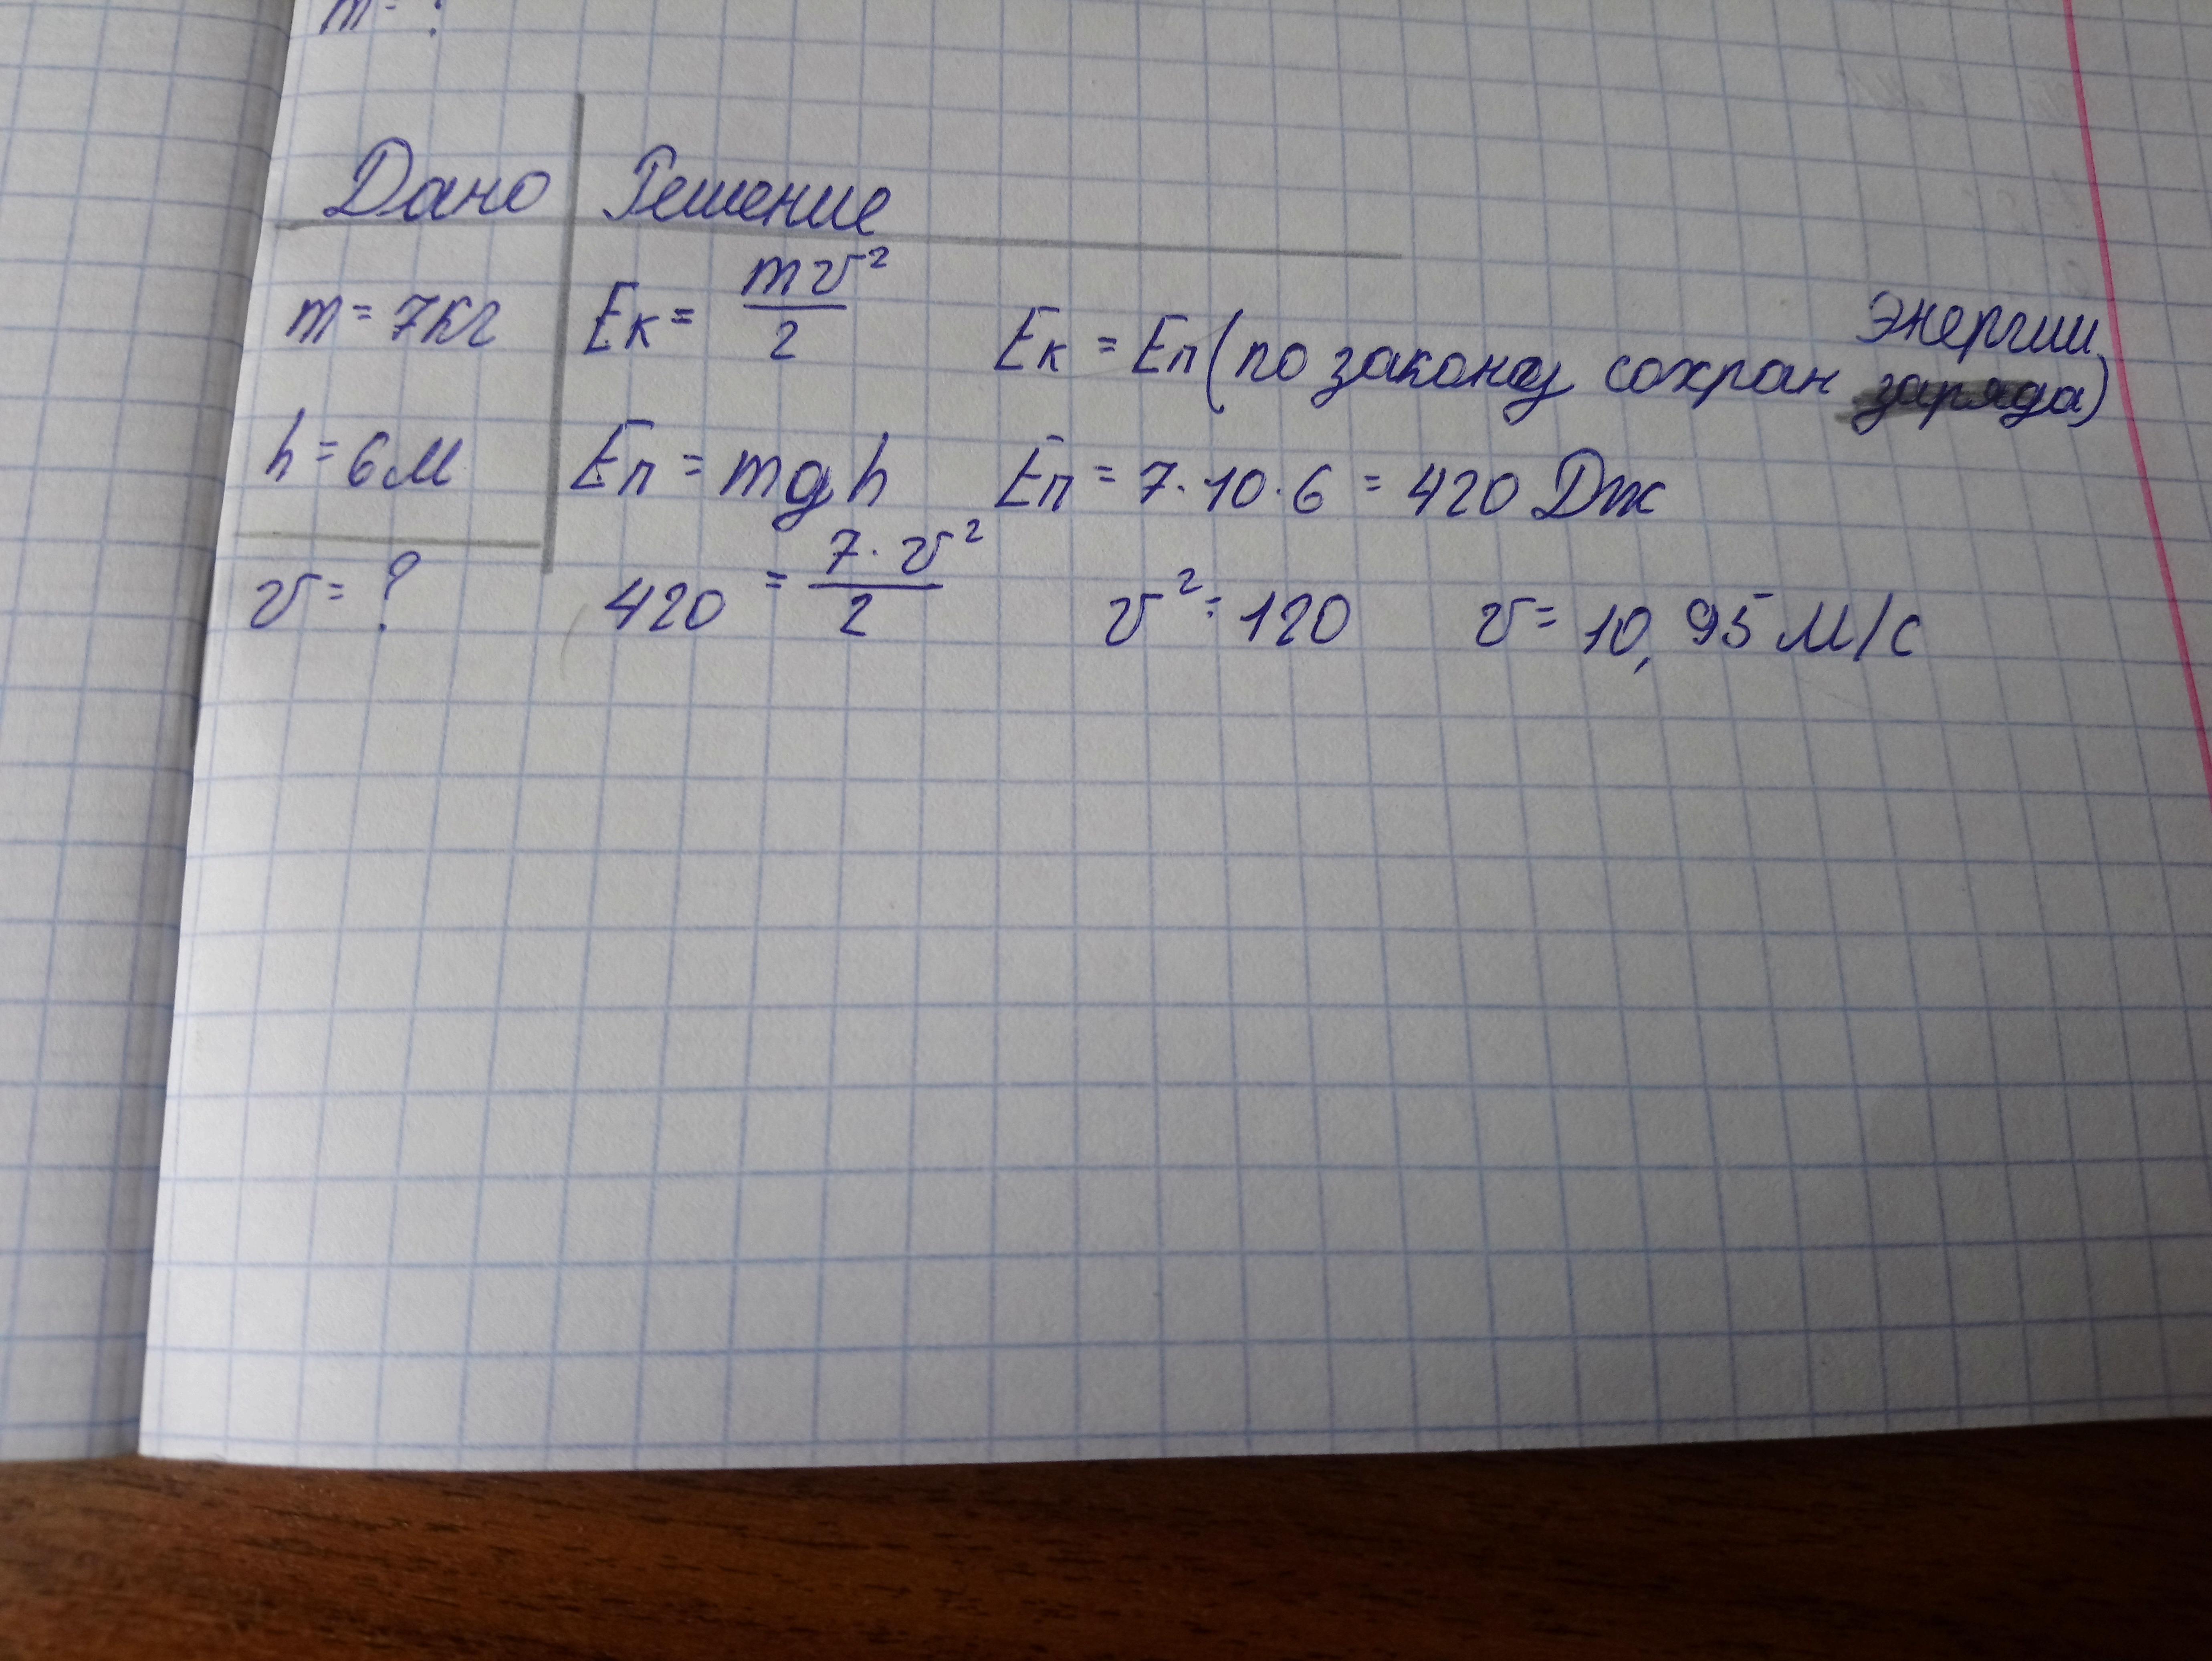 m = ?
Дано Решение
m = 7кг Eк = mv²/2 Eк = Eп (по закону сохран энергии заряда)
h = 6м Eп = mgh Eп = 7·10·6 = 420 Дж
v = ? 420 = 7·v²/2 v² = 120 v = 10,95 м/с